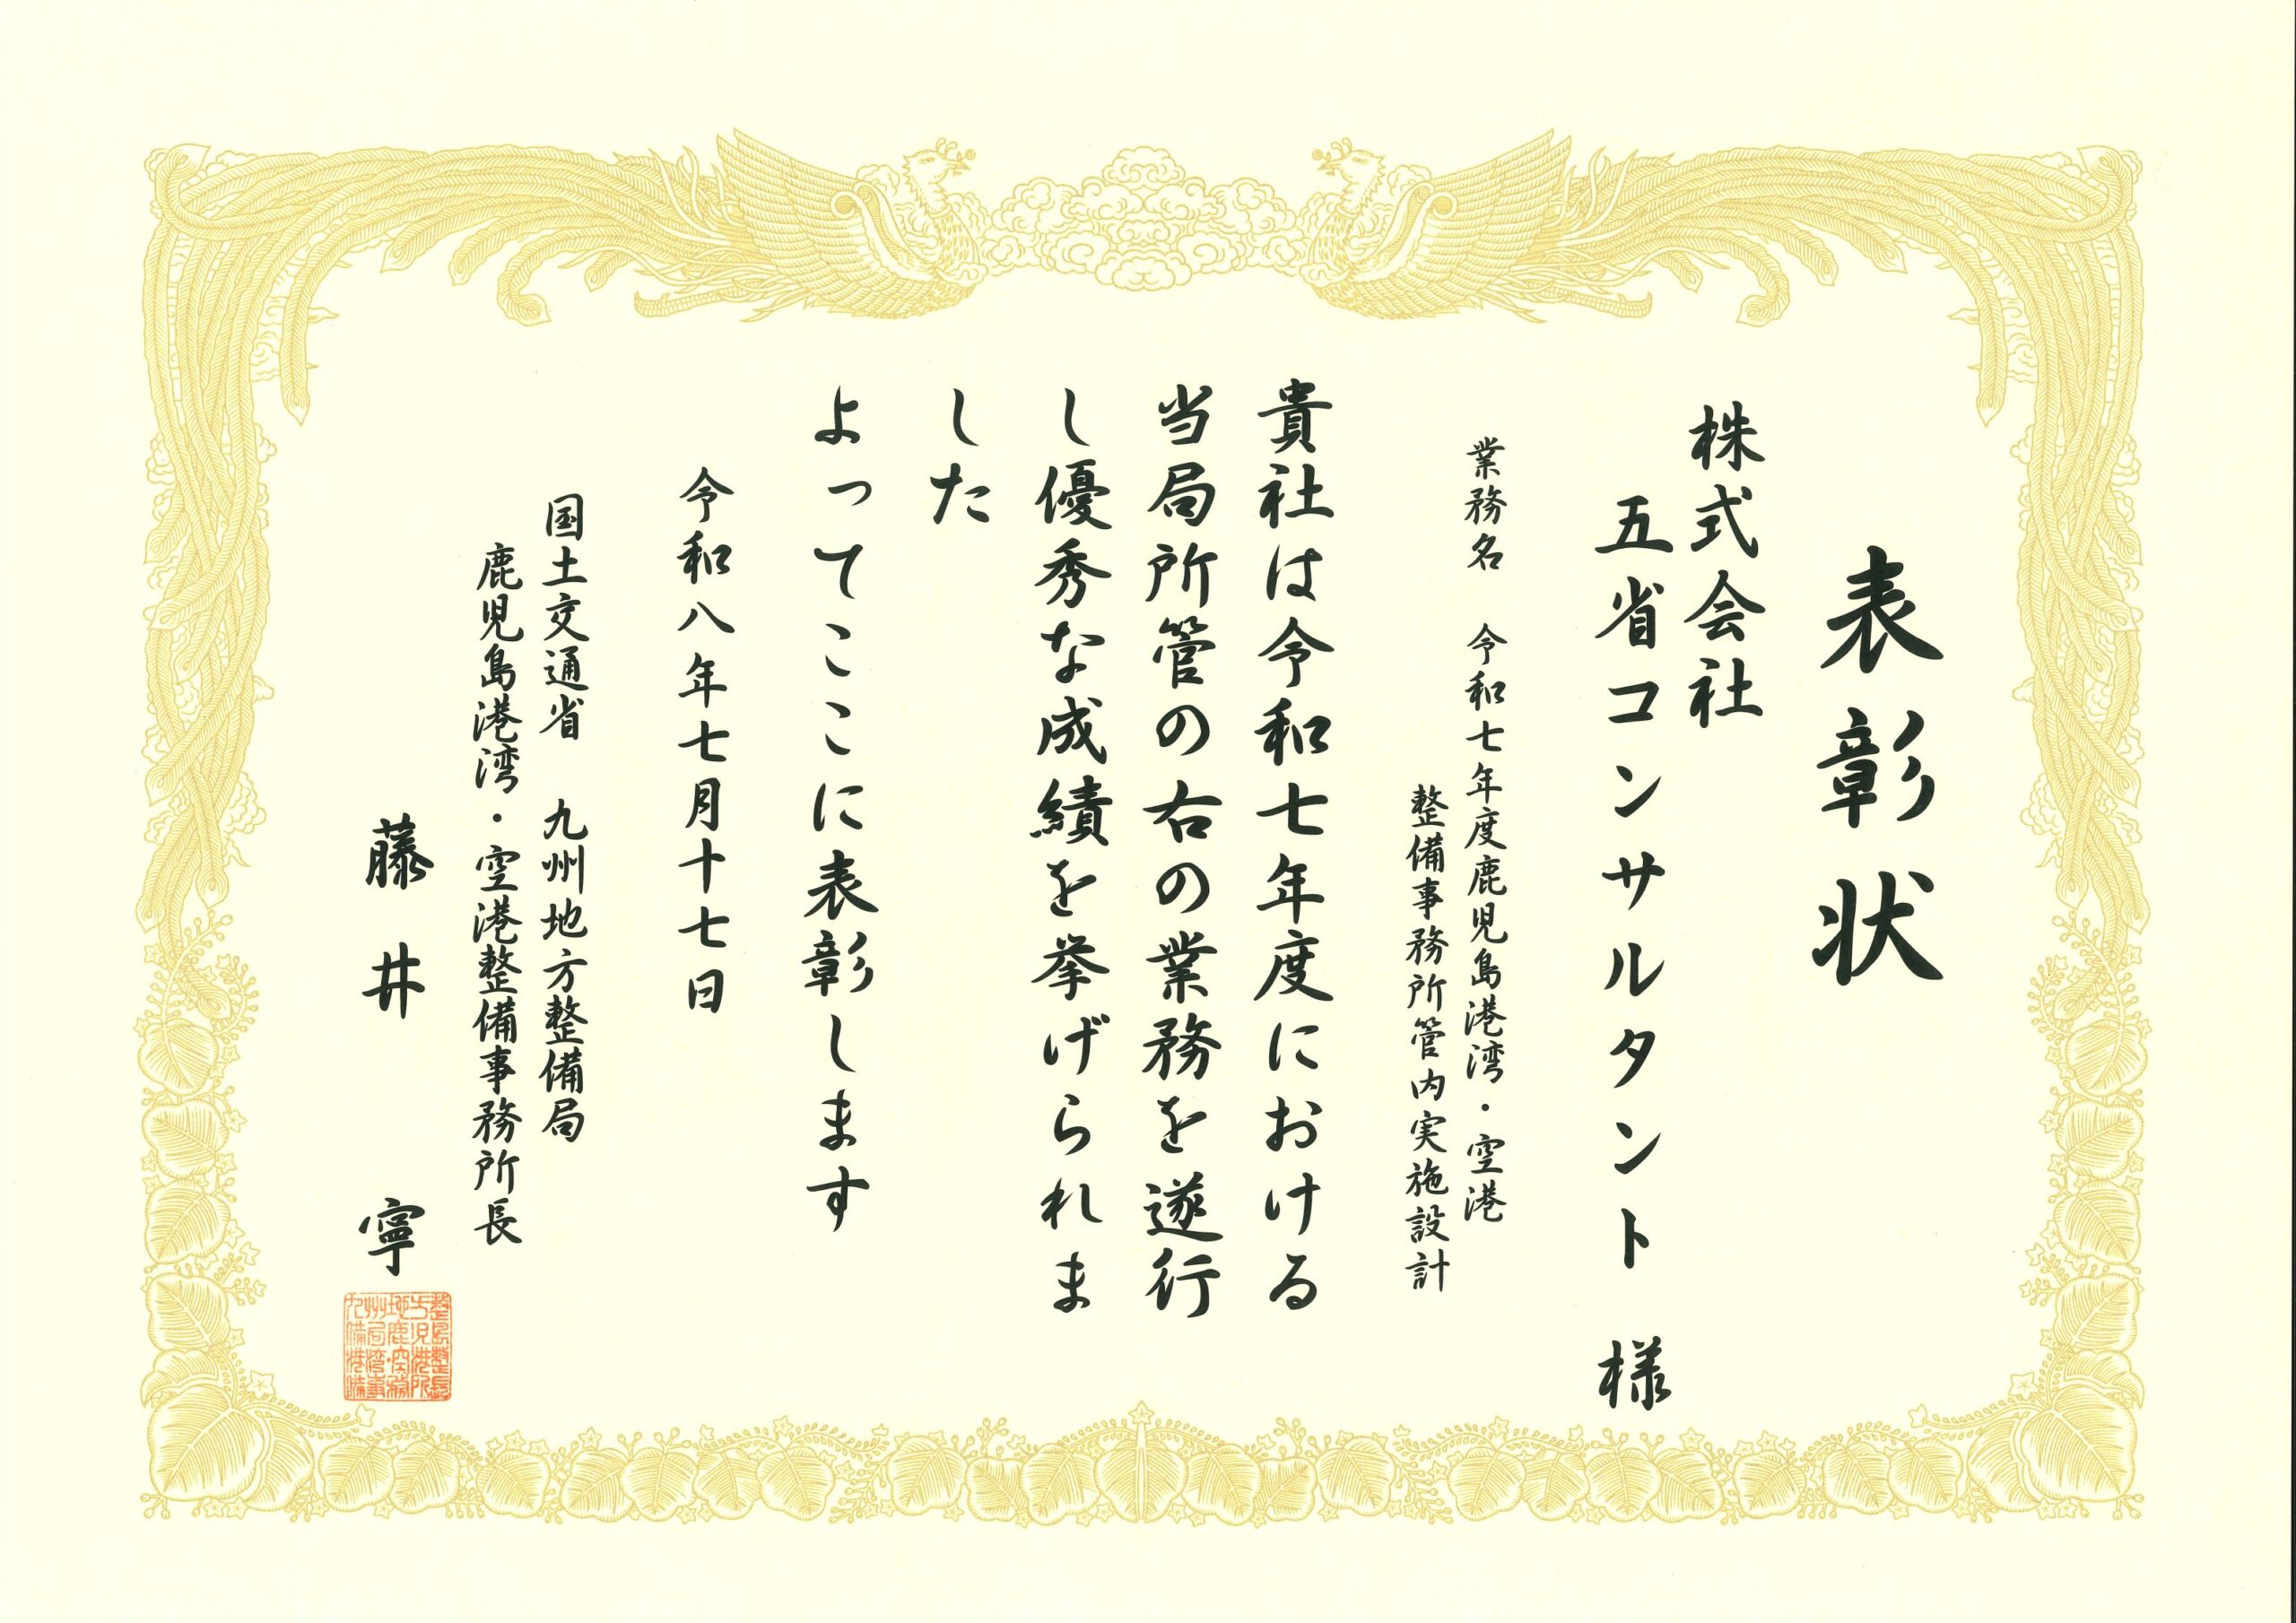 表彰状
株式会社
五省コンサルタント 様
業務名 令和七年度鹿児島港湾・空港
整備事務所管内実施設計
貴社は令和七年度における
当局所管の右の業務を遂行
し優秀な成績を挙げられま
した
よってここに表彰します
令和八年七月十七日
国土交通省 九州地方整備局
鹿児島港湾・空港整備事務所長
藤井 寧